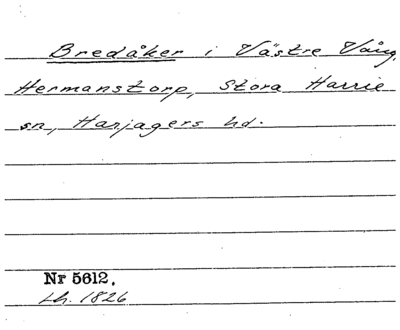 Bredåker i Västre Vång,
Hermanstorp, Stora Harrie
sn, Harjagers hd.
Nr 5612.
Lh. 1826